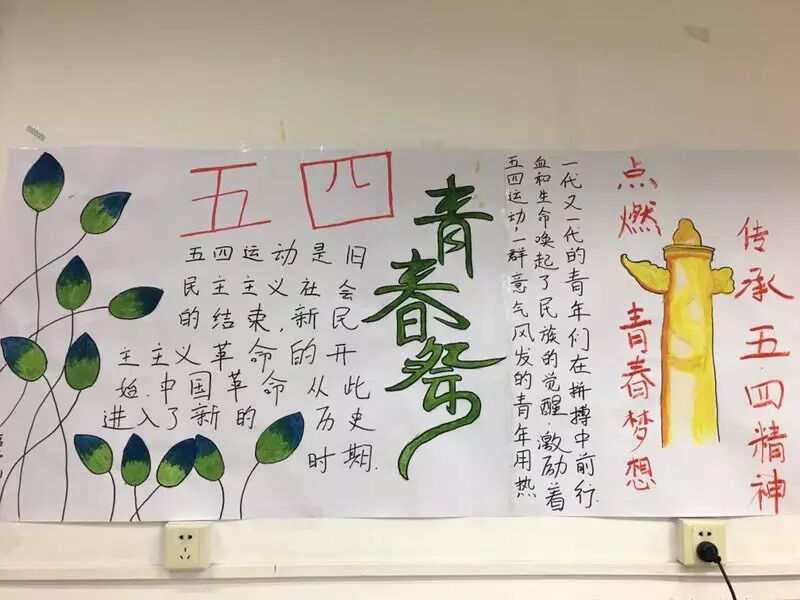 五四
五四运动是旧
民主主义社会
的结束,新民
主主义革命的开
始.中国革命从此
进入了新的 历史
时期.
青春祭
五四运动,一群意气风发的青年用热
血和生命唤起了民族的觉醒.激励着
一代又一代的青年们在拼搏中前行.
点燃 青春梦想
传承五四精神